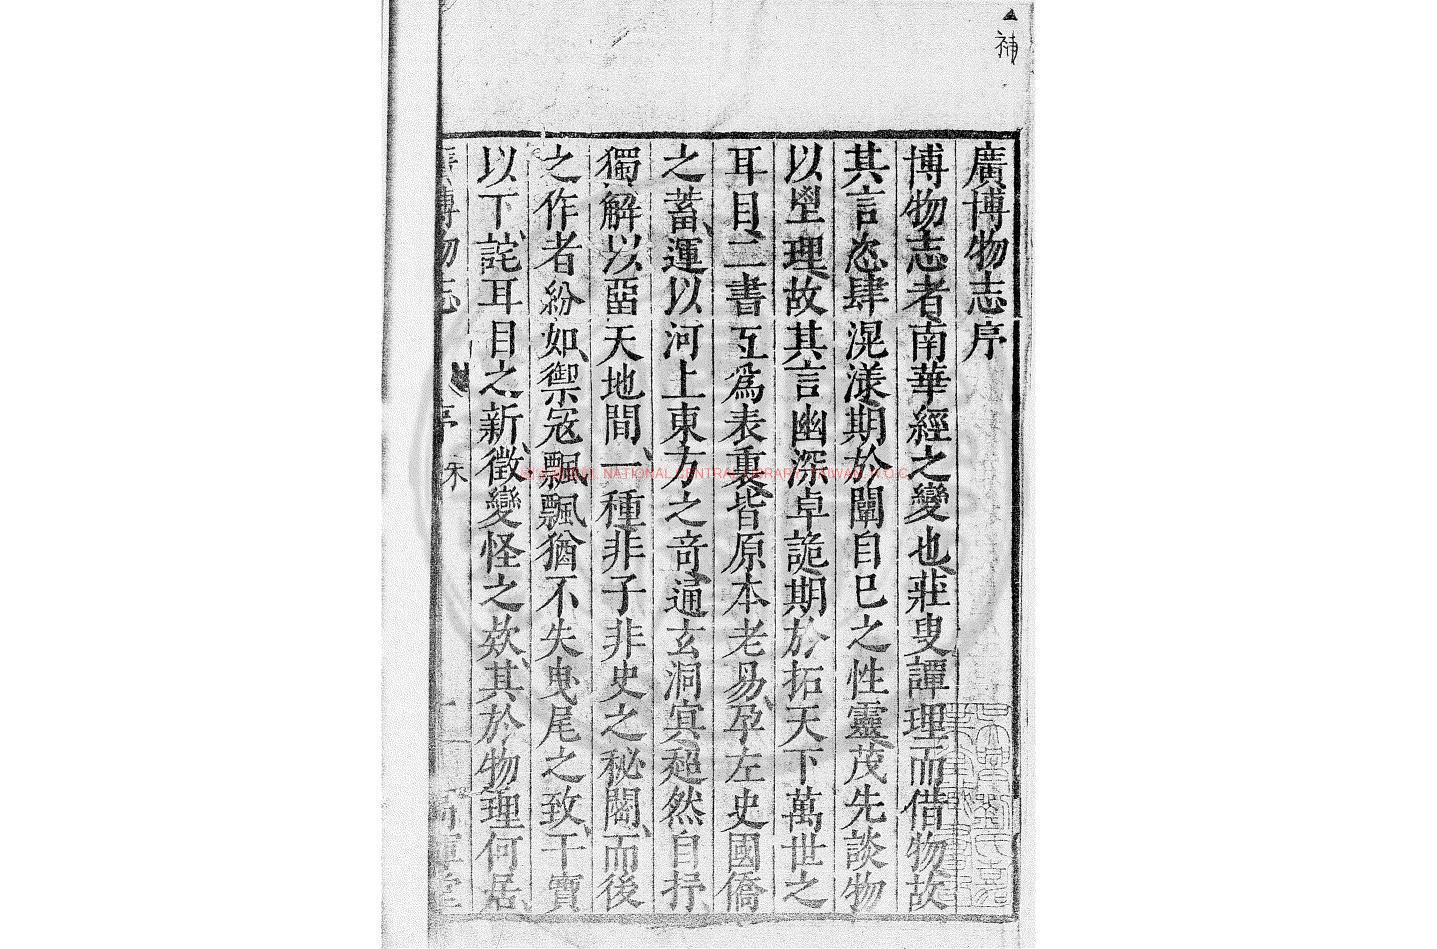 補
廣博物志序
博物志者南華經之變也莊叟譚理而借物故
其言恣肆滉漾期於闡自巳之性靈茂先談物
以壄理故其言幽深卓詭期於拓天下萬世之
耳目二書互爲表裏皆原本老易孕左史國僑
之蓄運以河上東方之竒逼玄洞㝠超然自抒
獨解以留天地間一種非子非史之秘闥而後
之作者紛如禦寇飄飄猶不失曳尾之致干寶
以下詫耳目之新徵變怪之欸其於物理何居
廣博物志 序 高暉堂
NATIONAL CENTRAL LIBRARY, TAIWAN, R.O.C.